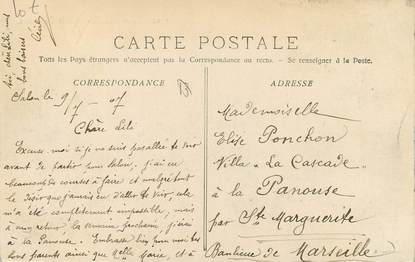 CARTE POSTALE
Tous les Pays étrangers n'acceptent pas la Correspondance au recto. - Se renseigner à la Poste.
CORRESPONDANCE
ADRESSE
Salon le 9/7 - 07
Chère Lili
Excuse moi si je ne suis pas allée te voir
avant de partir pour Salon, j'ai eu
beaucoup de courses à faire et malgré tout
le désir que j'avais eu d'aller te voir, cela
m'a été complètement impossible, mais
à mon retour, la semaine prochaine, j'irai
à la Panouse. Embrasse bien pour moi tes
bons parents ainsi que Melle et à
bons baisers
Cécile
Mademoiselle
Elise Ponchon
Villa "La Cascade"
à la Panouse
par Ste Marguerite
Banlieue de Marseille